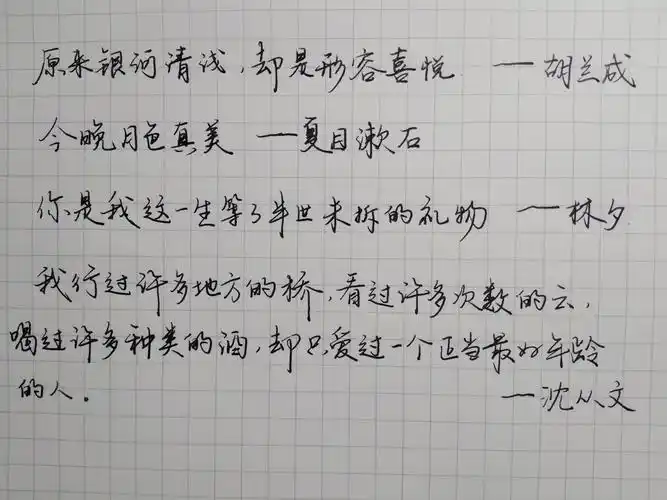 原来银河清浅，却是形容喜悦 ——胡兰成
今晚月色真美 ——夏目漱石
你是我这一生等了半世未拆的礼物 ——林夕
我行过许多地方的桥，看过许多次数的云，
喝过许多种类的酒，却只爱过一个正当最好年龄
的人。 ——沈从文